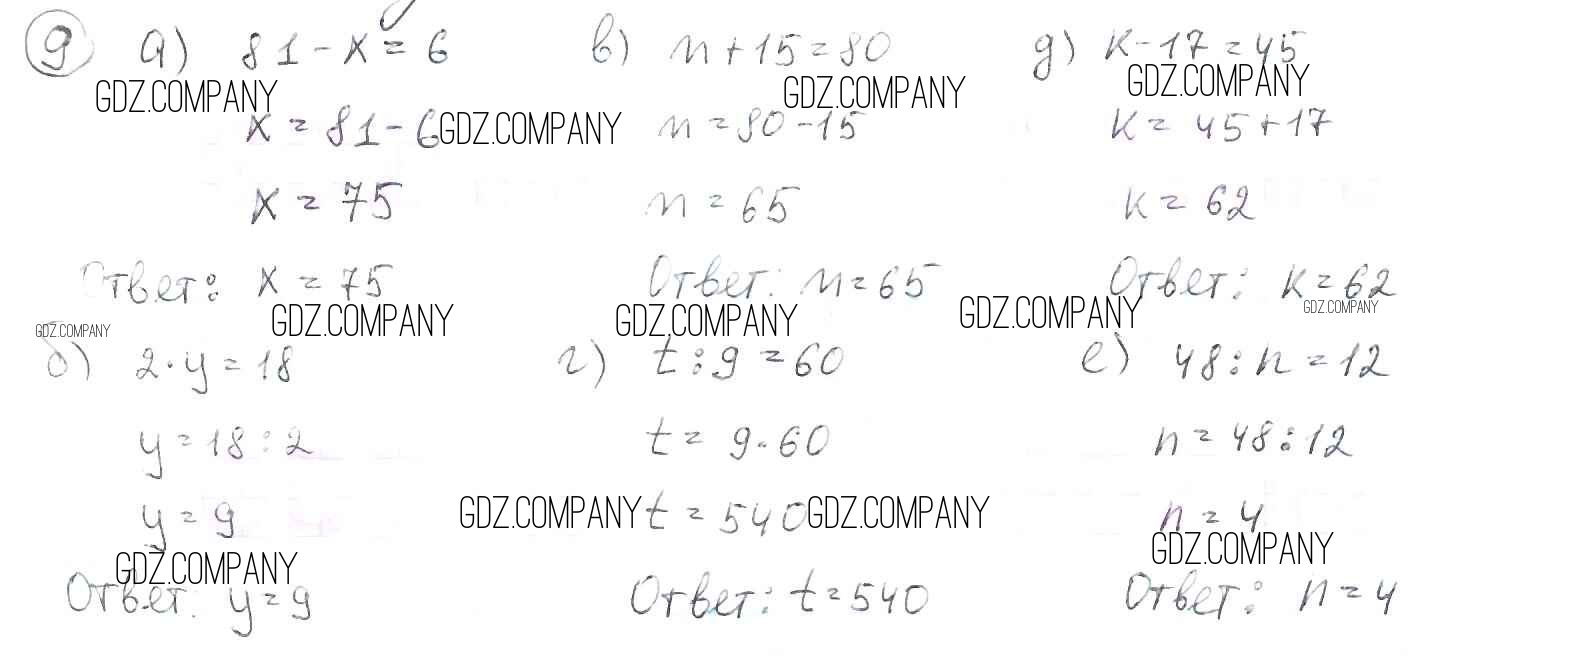 9 а) 81 - x = 6
GDZ.COMPANY
x = 81 - 6
GDZ.COMPANY
x = 75
Ответ: x = 75
GDZ.COMPANY
GDZ.COMPANY
б) 2 · y = 18
y = 18 : 2
y = 9
GDZ.COMPANY
Ответ: y = 9
в) m + 15 = 80
GDZ.COMPANY
m = 80 - 15
m = 65
Ответ: m = 65
GDZ.COMPANY
г) t : 9 = 60
t = 9 · 60
GDZ.COMPANY
t = 540
GDZ.COMPANY
Ответ: t = 540
д) k - 17 = 45
GDZ.COMPANY
k = 45 + 17
k = 62
Ответ: k = 62
GDZ.COMPANY
GDZ.COMPANY
е) 48 : n = 12
n = 48 : 12
n = 4
GDZ.COMPANY
Ответ: n = 4